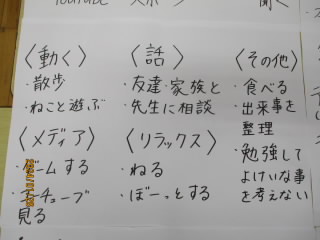 〈動く〉
・散歩
・ねこと遊ぶ
〈話〉
・友達・家族と
・先生に相談
〈その他〉
・食べる
・出来事を
整理
・勉強して
よけいな事
を考えない
〈メディア〉
・ゲームする
・ユーチューブ
見る
〈リラックス〉
・ねる
・ぼーっとする